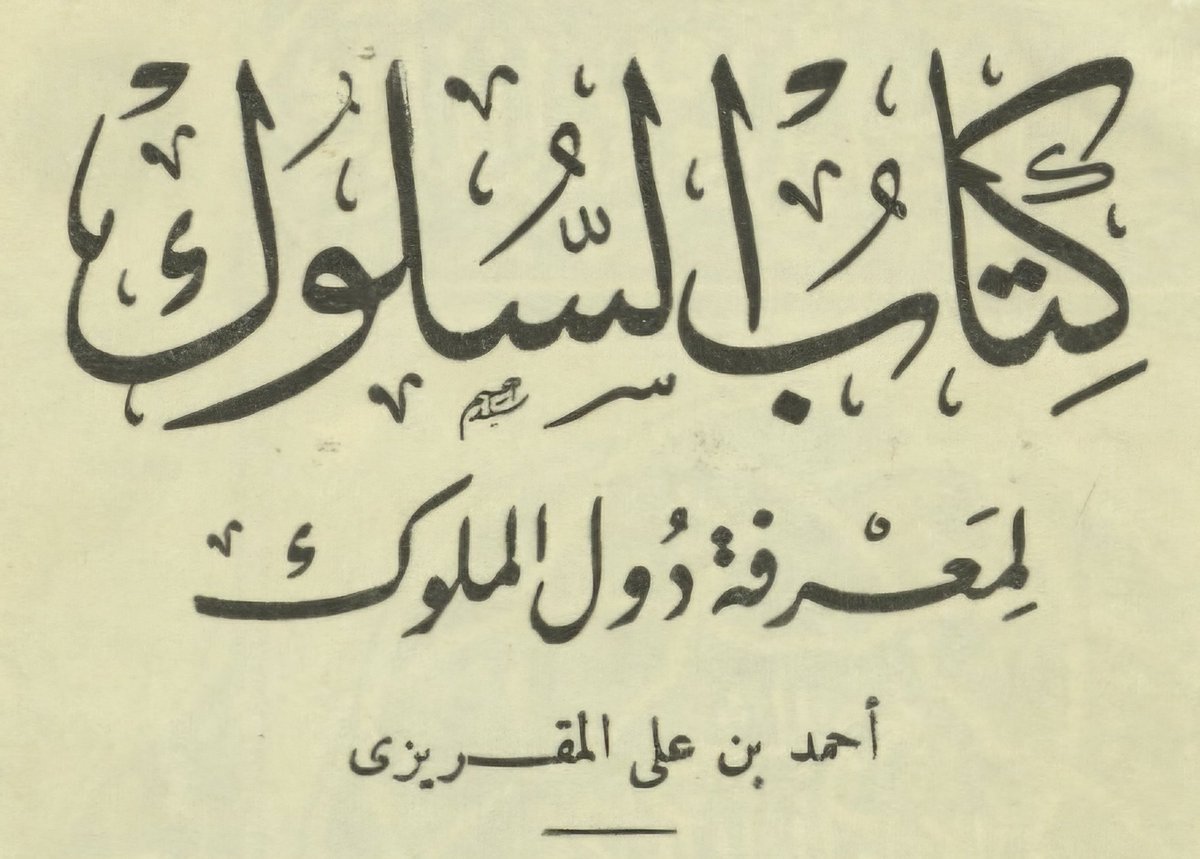 كِتَابُ السُّلُوكْ
لِمَعْرفة دُول الملوك
أحمد بن على المقريزى